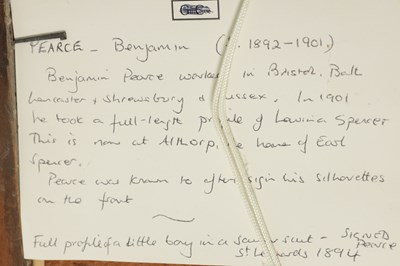 PEARCE - Benjamin ( . 1892-1901,)
Benjamin Pearce worked in Bristol, Bath
Lancaster, Shrewsbury & Sussex. In 1901
he took a full-length profile of Lavinia Spencer
This is now at Althorp, home of Earl
Spencer.
Pearce was known to often sign his silhouettes
on the front
Full profile of a little boy in a sailor suit - SIGNED
PEARCE
St Leonards 1894